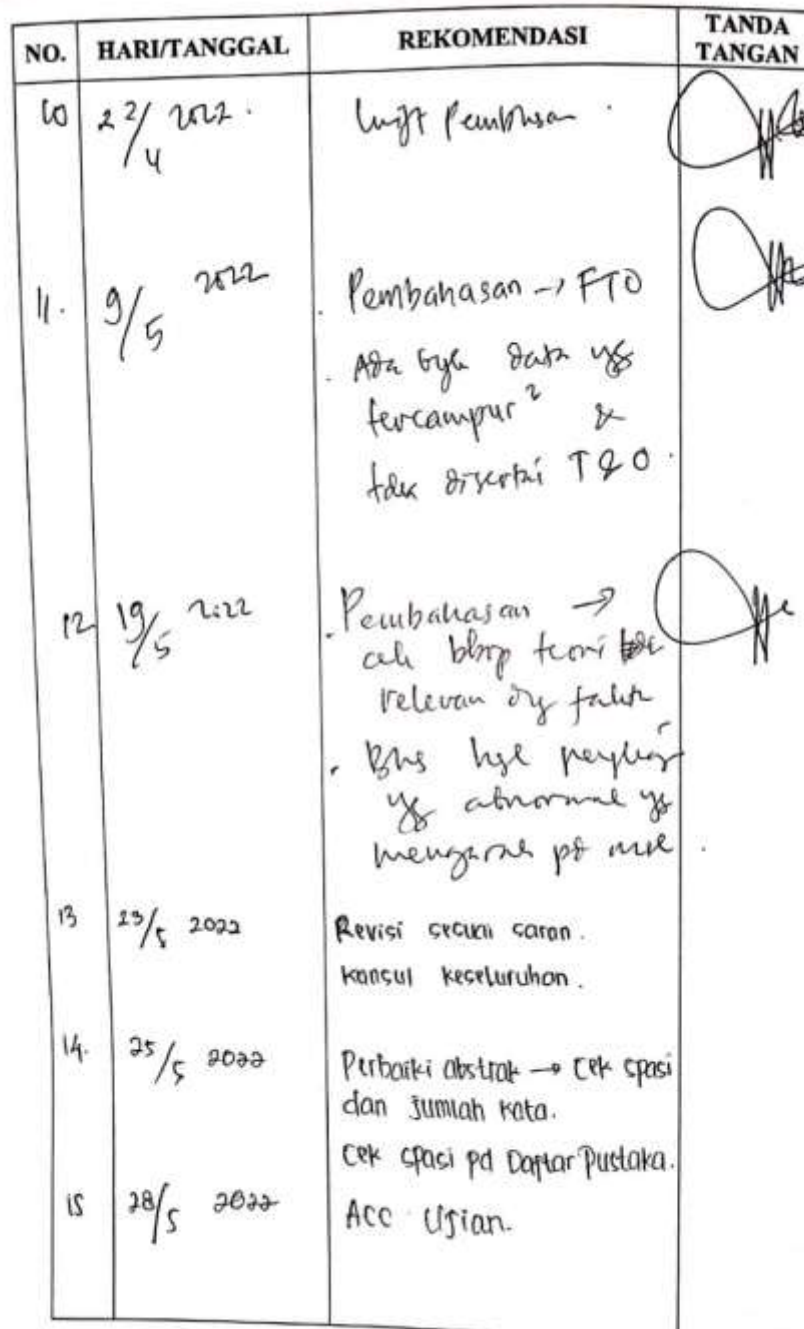 NO. HARI/TANGGAL REKOMENDASI TANDA TANGAN
10 22/4 2022. Pembhasan.
11. 9/5 2022 Pembahasan → FTO
. Ada byk data yg
tercampur² &
tdk disertai T & O.
12 19/5 2022 . Pembahasan →
cek bbrp teori
relevan dg fakta
. Bhs hsl
yg abnormal yg
mengarah pd
13 23/5 2022 Revisi sesuai saran.
Konsul keseluruhan.
14. 25/5 2022 Perbaiki abstrak → cek spasi
dan jumlah kata.
Cek spasi pd Daftar Pustaka.
15 28/5 2022 ACC Ujian.